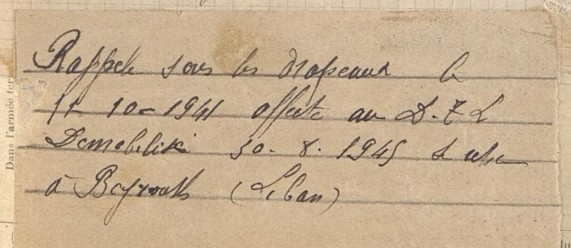 Rappelé sous les drapeaux le
11-10-1941 affecté au D.T.L
Démobilisé 30-8-1945 se retire
à Beyrouth (Liban)
Dans l'armée